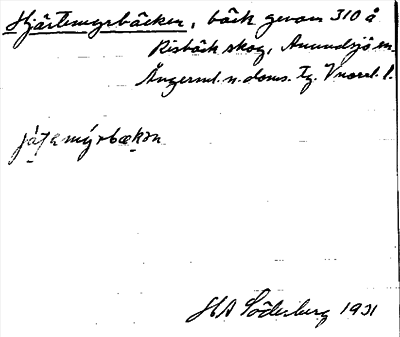 Hjärtemyrbäcken, bäck genom 310 å
Risbäck skog, Anundsjö sn.
Ångerml. n. doms. tg. Vnorrl. l.
järtemýrbækɔn
HA Söderberg 1931